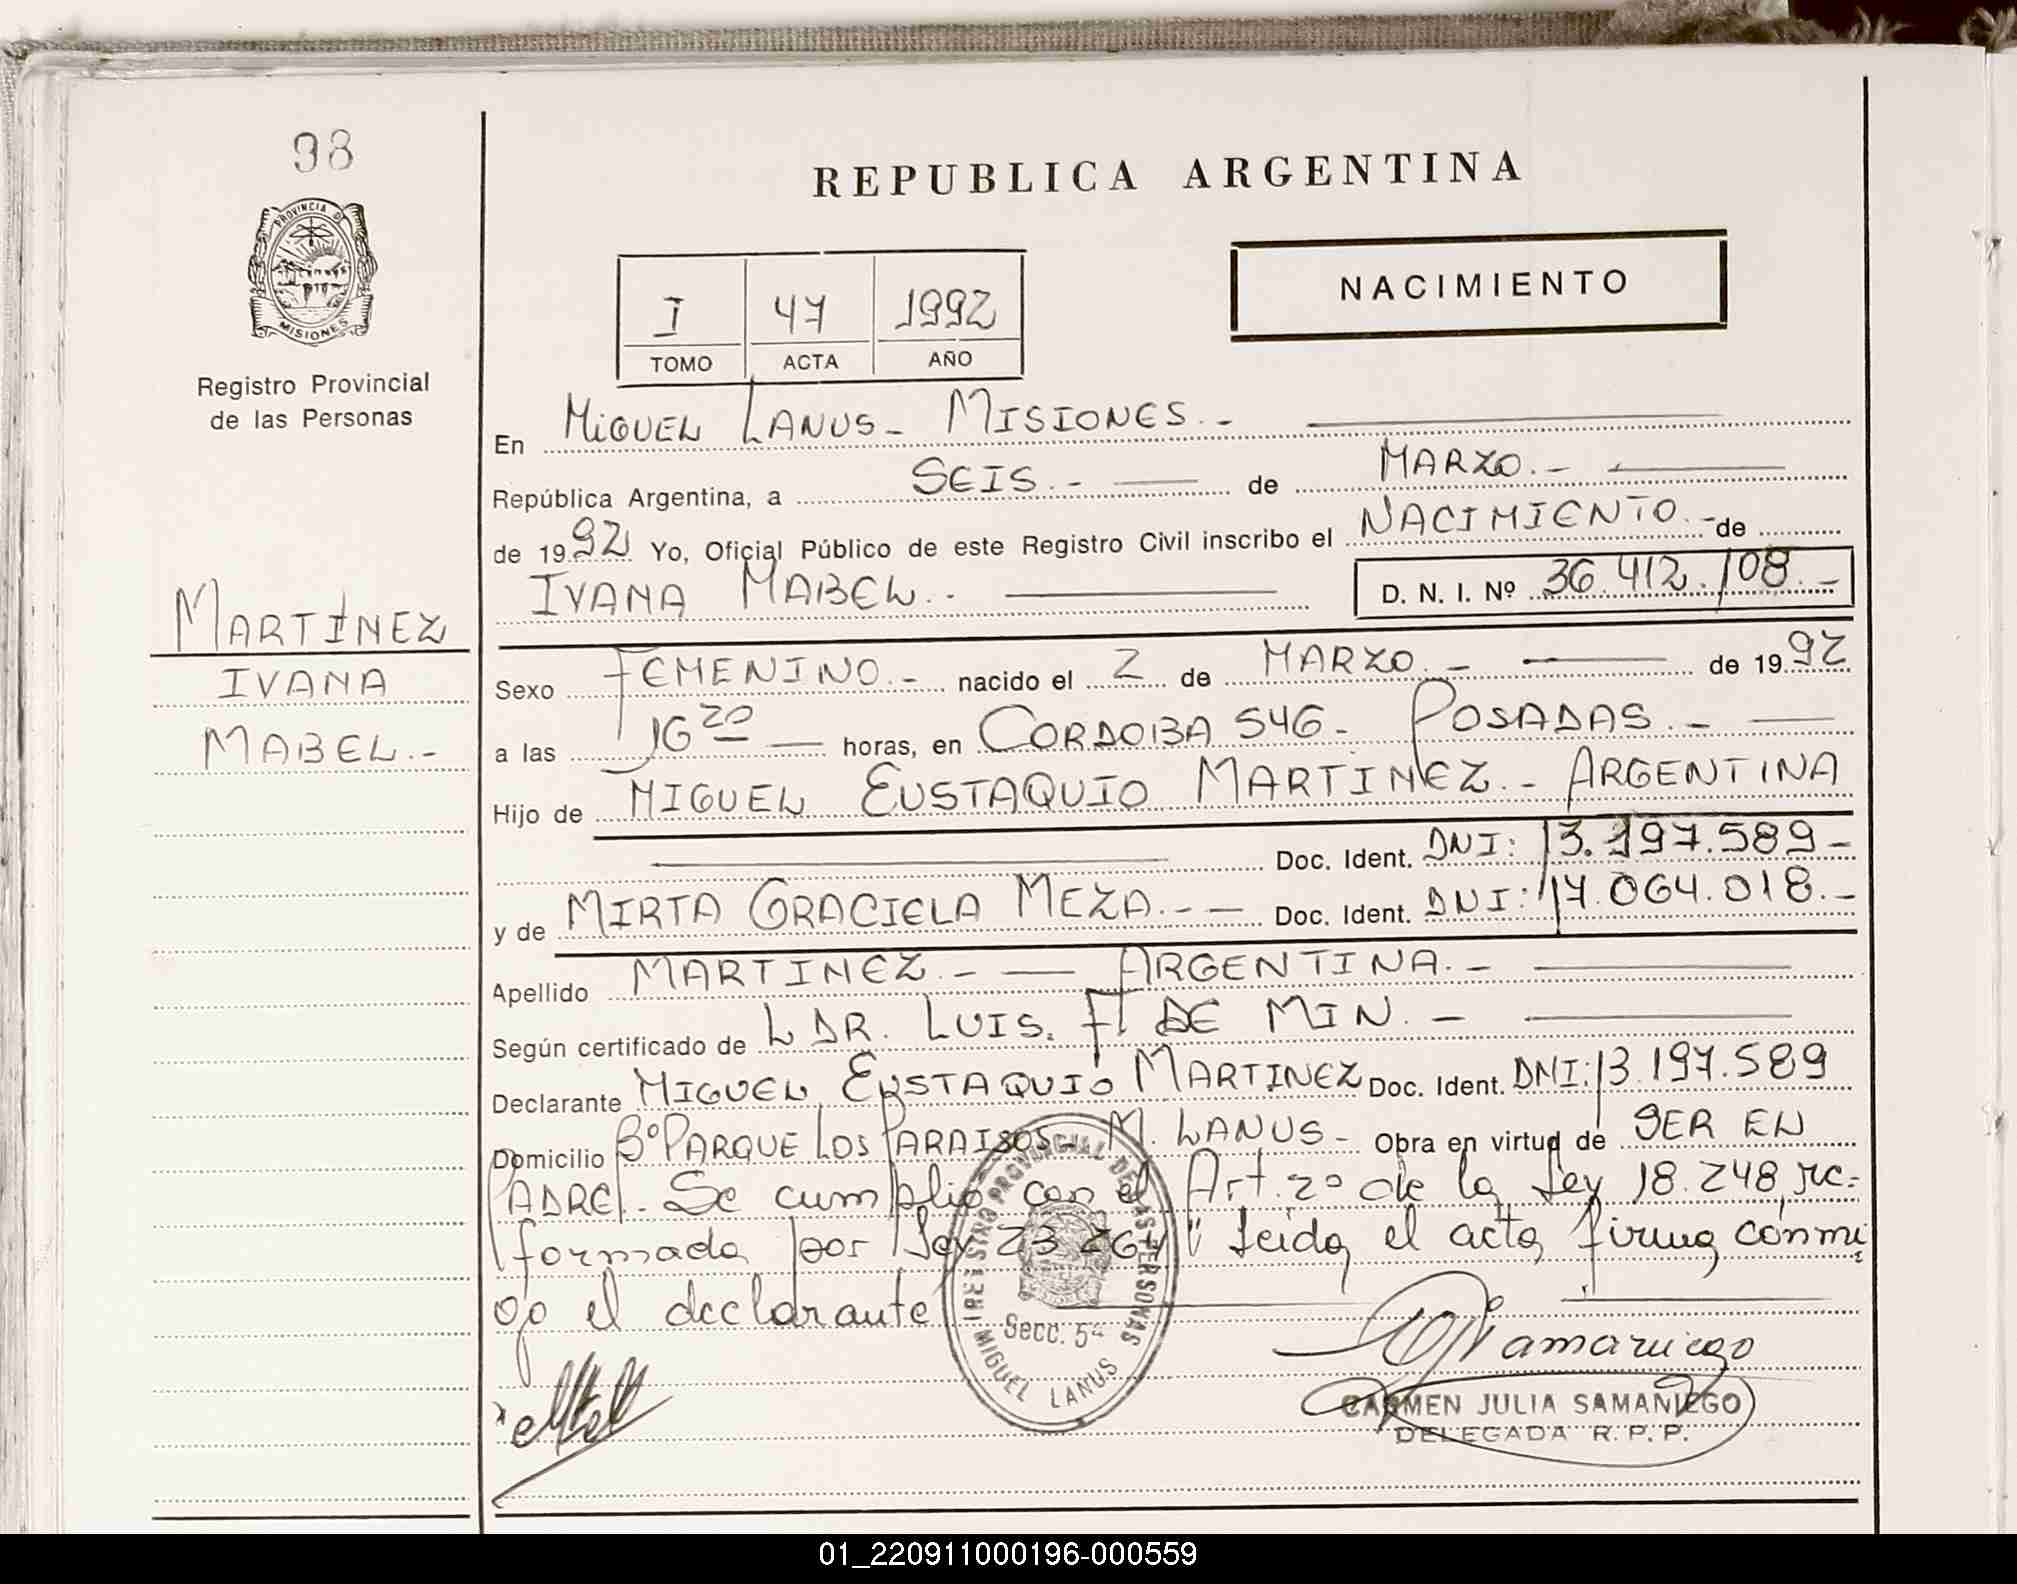 98
PROVINCIA DE
MISIONES
Registro Provincial
de las Personas
MARTÍNEZ
IVANA
MABEL.-
REPUBLICA ARGENTINA
I 47 1992
TOMO ACTA AÑO
NACIMIENTO
En MIGUEL LANUS- MISIONES.-
República Argentina, a SEIS.- de MARZO.-
de 1992 Yo, Oficial Público de este Registro Civil inscribo el NACIMIENTO.- de
IVANA MABEL.- D. N. I. Nº 36.412.108.-
Sexo FEMENINO.- nacido el 2 de MARZO.- de 1992
a las 16 20 horas, en CORDOBA 546- POSADAS.-
Hijo de MIGUEL EUSTAQUIO MARTINEZ.- ARGENTINA
Doc. Ident. DNI: 13.197.589-
y de MIRTA GRACIELA MEZA.- Doc. Ident. DNI: 17.064.018.-
Apellido MARTINEZ.- ARGENTINA.-
Según certificado de L DR. LUIS. DE MIN.-
Declarante MIGUEL EUSTAQUIO MARTINEZ Doc. Ident. DNI: 13.197.589
Domicilio Bº PARQUE LOS PARAISOS- M. LANUS- Obra en virtud de SER EL
PADRE.- Se cumplio con el Art. 2º de la Ley 18.248, re-
formada por Ley 23.264" Leida el acta firma conmi
go el declarante
REGISTRO PROVINCIAL DE LAS PERSONAS
Secc. 5ª
MIGUEL LANUS
Samaniego
CARMEN JULIA SAMANIEGO
DELEGADA R. P. P.
01_220911000196-000559